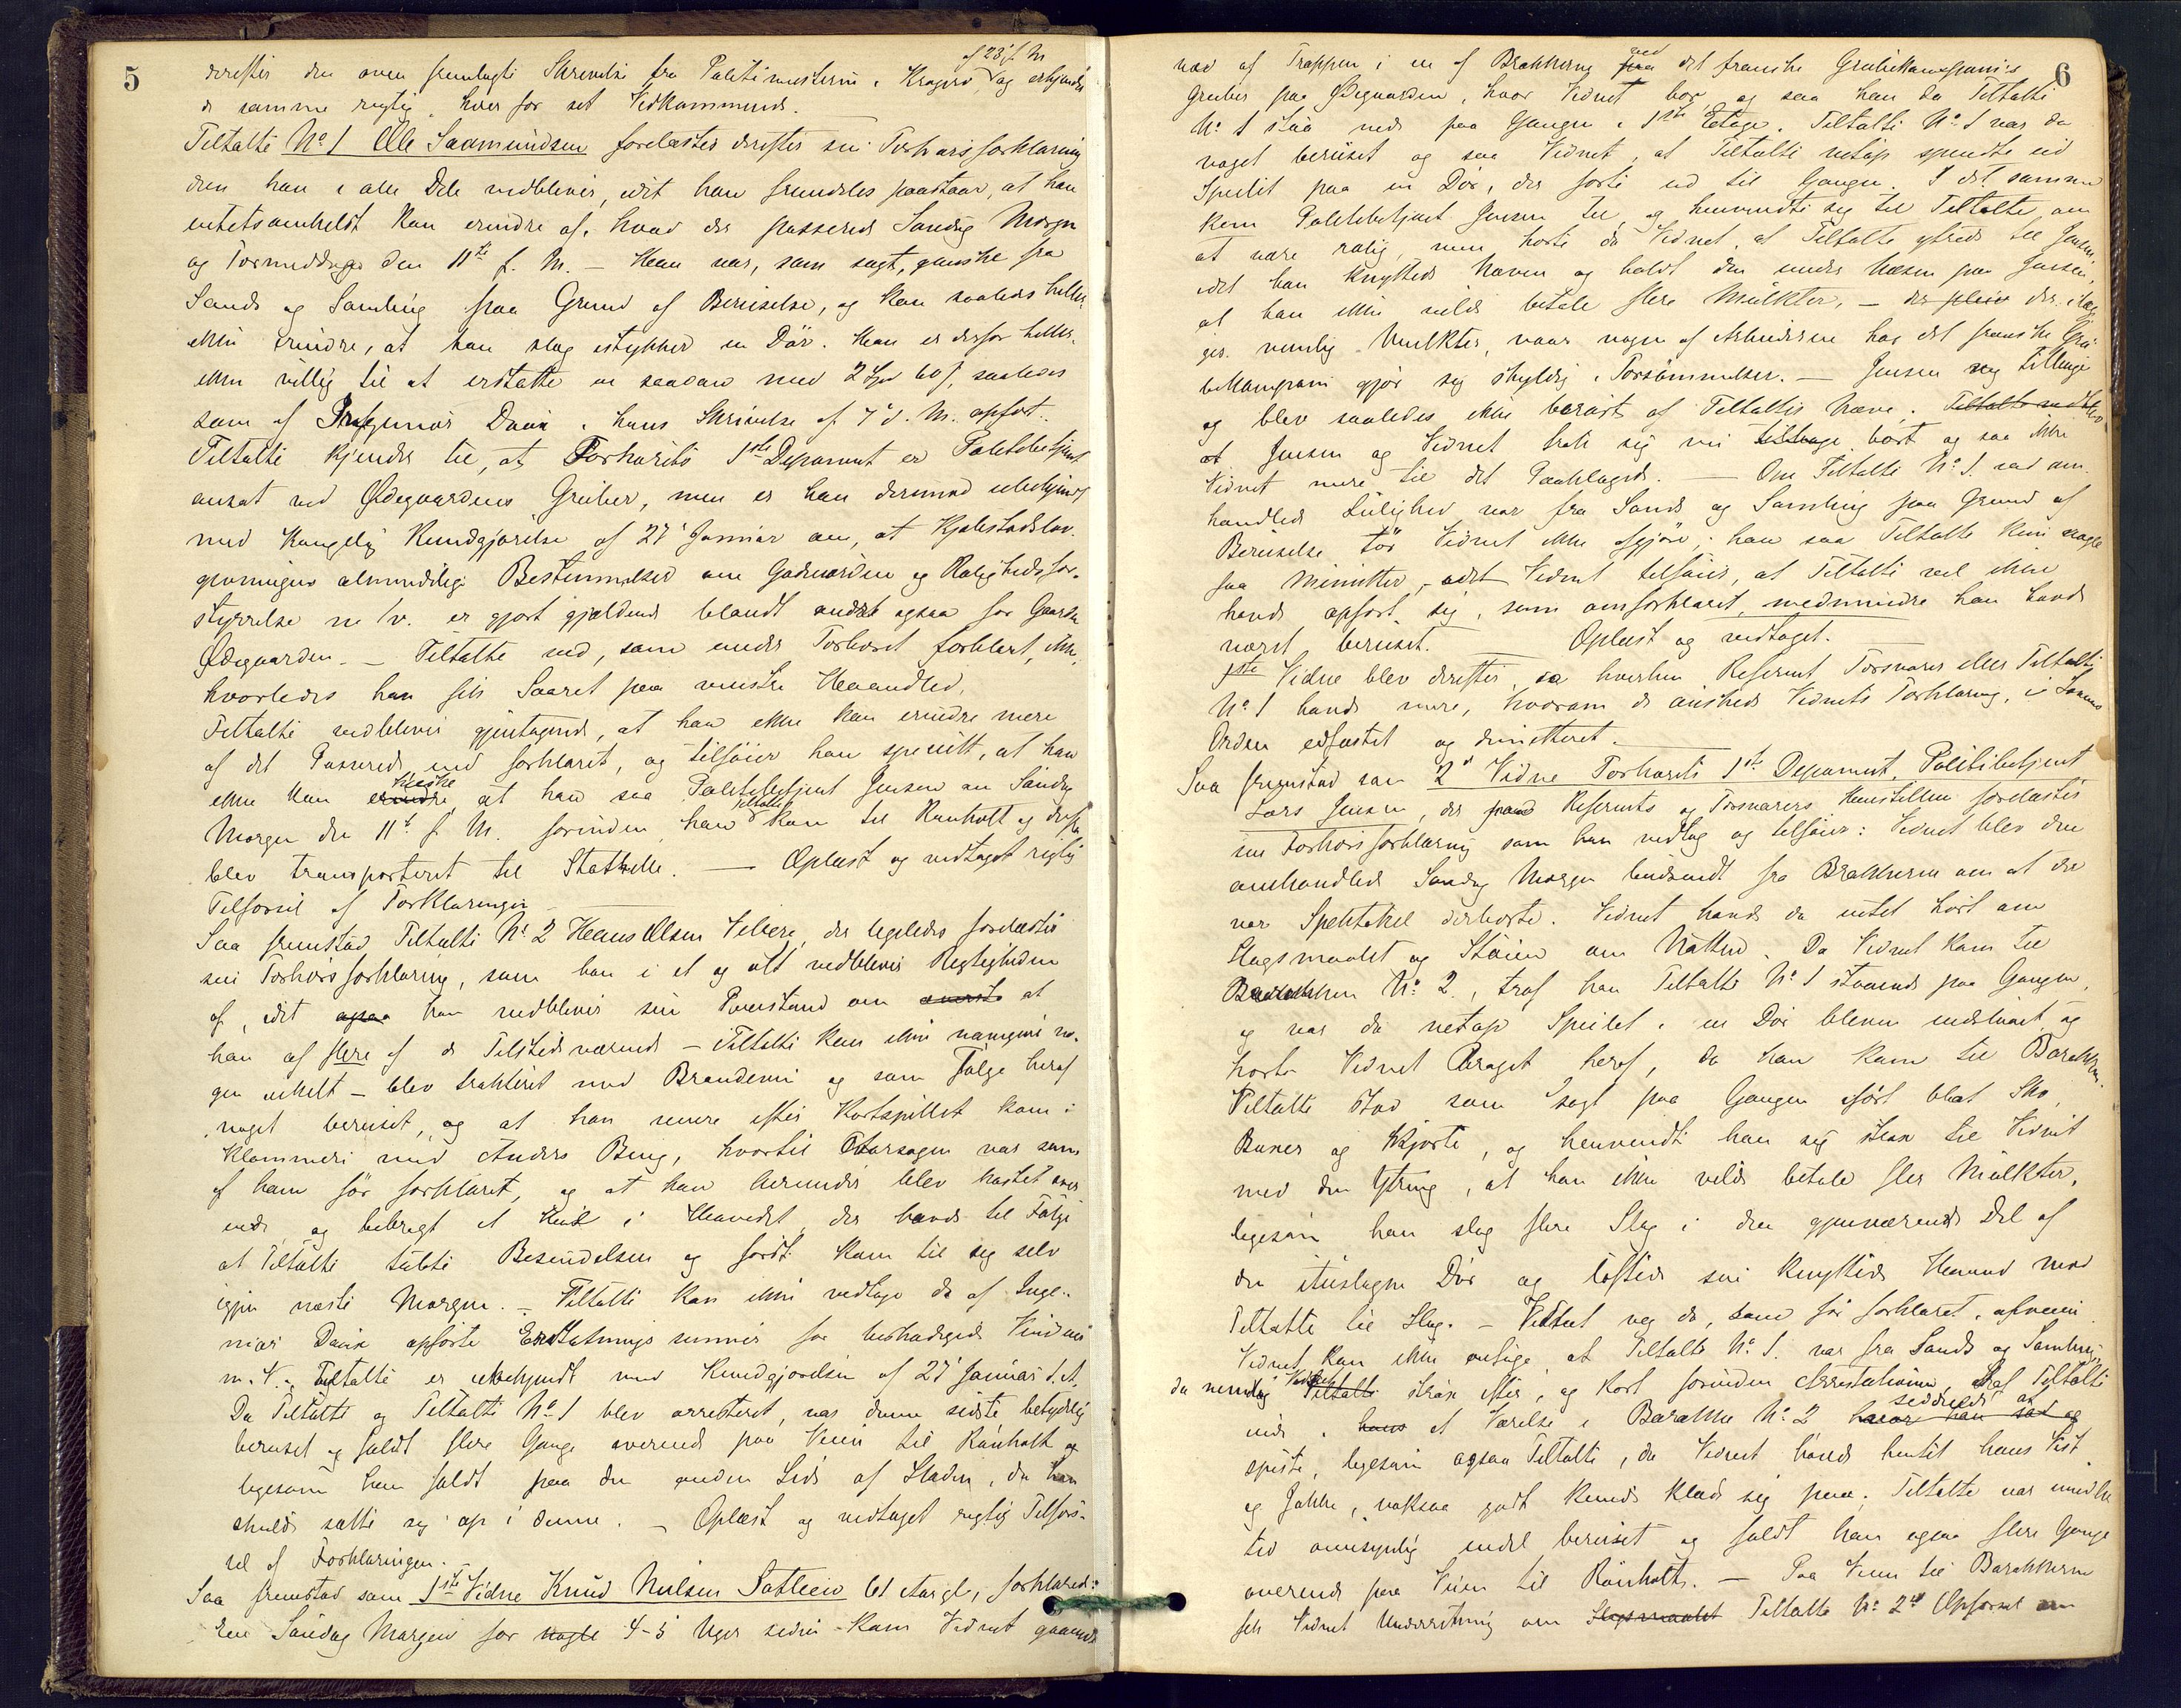 5
af 23' f. M
derefter den oven fremlagte Skrivelse fra Politimesteren i Kragerö og erkjendte
de samme rigtig hver for sit Vedkommende.
Tiltalte No 1 Ole Saamundsen forelæstes derefter sin Forhörsforklaring
den han i alle Dele vedbliver, idet han fremdeles paastaar, at han
intetsomhelst kan erindre af, hvad der passerede Söndag Morgen
og Formiddag den 11te f. M. – Han var, som sagt, ganske fra
Sands og Samling paa Grund af Beruselse, og kan saaledes heller
ikke erindre, at han slog istykker en Dör. Han er derfor heller
ikke villig til at erstatte en saadan med 2 Spd 60 s, saaledes
som af Ingeniör Daux i hans Skrivelse af 7' d. M. opfört.
Tiltalte kjender til, at Forhörets 1ste Deponent er Politibetjent
ansat ved Ödegaardens Gruber, men er han derimod ubekjendt
med Kongelig Kundgjörelse af 27' Januar om, at Kjöbstadslov-
givningens almindelige Bestemmelser om Gadeorden og Roligheds for-
styrrelse m/v. er gjort gjældende blandt andet ogsaa for Gaarden
Ödegaarden. – Tiltalte ved, som under Forhöret forklaret, ikke,
hvorledes han fik Saaret paa venstre Haandled.
Tiltalte vedbliver gjentagende, at han ikke kan erindre mere
af det Passerede end forklaret, og tilföier han specielt, at han
huske
ikke kan erindre, at han saa Politibetjent Jensen om Söndag
Tiltalte
Morgen den 11te f. M. forinden han kom til Rönholt og derfra
blev transporteret til Stathelle. — Oplæst og vedtaget rigtig
Tilförsel af Forklaringen
Saa fremstod Tiltalte No 2 Hans Olsen Vebere, der ligeledes forelæstes
sin Forhörsforklaring, som han i et og alt vedbliver Rigtigheden
af, idet ogsaa han vedbliver sin Paastand om at
han af flere af de Tilstedeværende – Tiltalte kan ikke navngive no-
gen enkelt – blev trakteret med Brændevin og som Fölge heraf
noget beruset, og at han senere efter Kortspillet kom i
Klammeri med Anders Berg, hvortil Aarsagen var som
af ham för forklaret, og at han herunder blev kastet over
ende og bibragt et Hul i Hovedet, der havde til Fölge
at Tiltalte tabte Besindelsen og först kom til sig selv
igjen næste Morgen. – Tiltalte kan ikke vedtage de af Inge-
niör Daux opförte Erstatningssummer for beskadigede Vinduer
m. V. Tiltalte er ubekjendt med Kundgjörelsen af 27' Januar d. A.
Da Tiltalte og Tiltalte No 1 blev arresteret, var denne sidste betydelig
beruset og faldt flere Gange overende paa Veien til Rönholt og
ligesom han faldt paa den anden Side af Slæden, da han
skulde sætte sig op i denne. – Oplæst og vedtaget rigtig Tilför-
sel af Forklaringen.
Saa fremstod som 1ste Vidne Knud Nielsen Sætleiv 61 Aar gl, forklarede:
En Söndag Morgen for nogle 4-5 Uger siden kom Vidnet gaaende
6
ved
ned af Trappen i en af Brakkerne fra det franske Grubekompanis
Gruber paa Ödegaarden, hvor Vidnet bor, og saa han da Tiltalte
No 1 staa nede paa Gangen i 1ste Etage. Tiltalte No 1 var da
noget beruset og saa Vidnet, at Tiltalte netop spendte ud
Speilet paa en Dör, der förte ud til Gangen. I det samme
kom Politibetjent Jensen til og henvendte sig til Tiltalte om
at være rolig, men hörte da Vidnet, at Tiltalte ytrede til Jensen,
idet han knyttede Næven og holdt den under Næsen paa Jensen,
at han ikke vilde betale flere Mulkter, – der pleier der ilæg-
ges nemlig Mulkter, naar nogen af Arbeiderne hos det franske Gru-
bekompani gjör sig skyldig i Forsömmelser. — Jensen veg tilbage
og blev saaledes ikke berört af Tiltaltes Næve.
at Jensen og Vidnet trak sig nu tilbage bort og saa ikke
Vidnet mere til det Paaklagede. — Om Tiltalte No 1. ved om-
handlede Leilighed var fra Sands og Samling paa Grund af
Beruselse tör Vidnet ikke afgjöre; han saa Tiltalte kun nogle
faa Minutter, idet Vidnet tilföier, at Tiltalte vel ikke
havde opfört sig, som omforklaret, medmindre han havde
været beruset. — Oplæst og vedtaget.
1ste Vidne blev derefter, da hverken Referent Forsvarer eller Tiltalte
No 1 havde mere, hvorom de önskede Vidnets Forklaring, i Lovens
Orden edfæstet og dimitteret.
Saa fremstod som 2' Vidne Forhörets 1ste Deponent, Politibetjent
Lars Jensen, der paa Referents og Forsvarers Henstillen forelæstes
sin Forhörsforklaring som han vedtog og tilföier: Vidnet blev den
omhandlede Söndag Morgen budsendt fra Brakkerne om at der
var Spektakel derborte. Vidnet havde da intet hört om
Slagsmaalet og Stöien om Natten. Da Vidnet kom til
Barakken No 2, traf han Tiltalte No 1 staaende paa Gangen,
og var da netop Speilet i en Dör bleven indslaaet og
hörte Vidnet Braget heraf, da han kom til Barakken.
Tiltalte stod som sagt paa Gangen ifört blot Sko,
Buxer og Skjorte, og henvendte han sig strax til Vidnet
med den Ytring, at han ikke vilde betale flere Mulkter,
ligesom han slog flere Slag i den gjenværende Del af
den ituslagne Dör og löftede sin knyttede Haand mod
Tiltalte til Slag. – Vidnet veg da, som för forklaret, afveien.
Vidnet kan ikke antage at Tiltalte No 1. var fra Sands og Samling,
Vidnet
da nemlig Tiltalte strax efter, og kort forinden Arrestationen, traf Tiltalte
siddende at
inde i hans et Værelse i Barakke No 2 hvor han sad og
spiste, ligesom ogsaa Tiltalte, da Vidnet havde hentet hans Vest
og Jakke, noksaa godt kunde klæde sig paa. Tiltalte var imidler-
tid öiensynlig endel beruset og faldt han ogsaa flere Gange
overende paa Veien til Rönholt. — Paa Veien til Barakkerne
fik Vidnet Underretning om Slagsmaalet Tiltalte No 2's Opförsel om